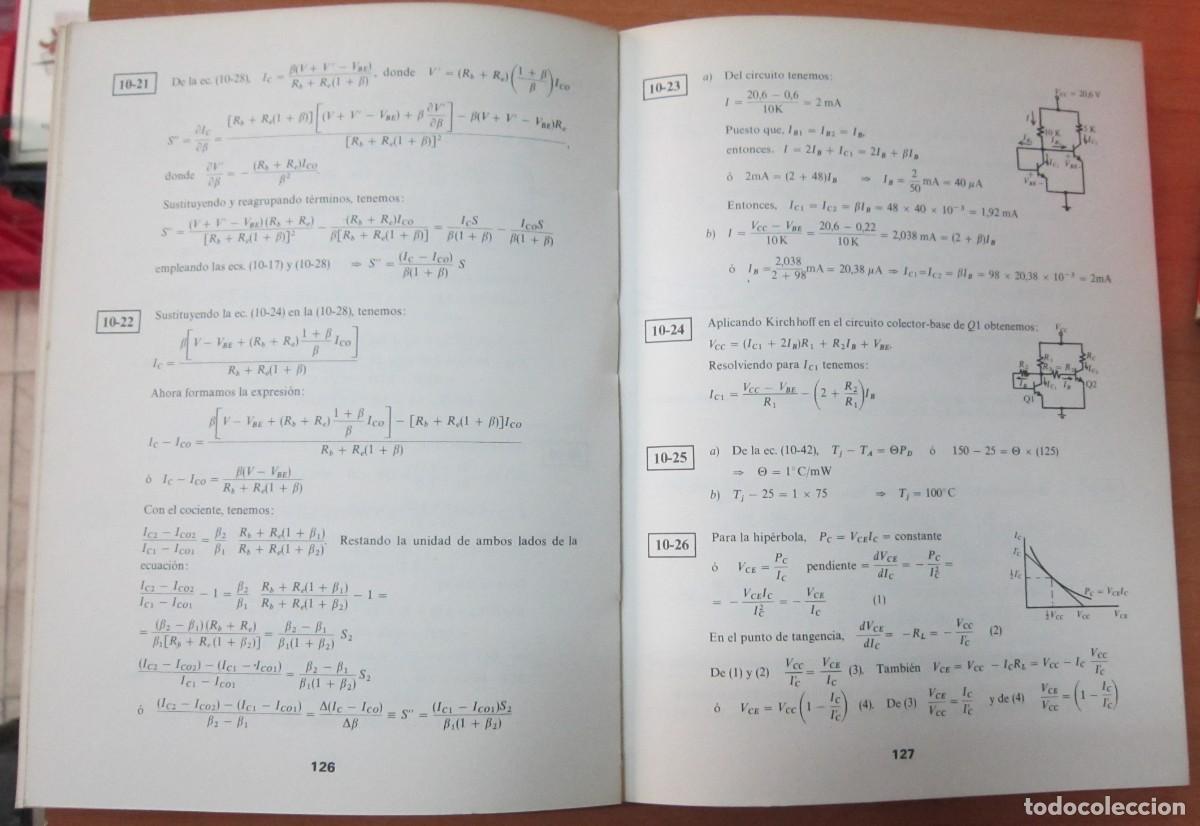 10-21 De la ec. (10-28), I_C = β(V + V' − V_BE) / (R_b + R_e(1 + β)), donde V' = (R_b + R_e)((1 + β)/β)I_CO
S'' = ∂I_C/∂β = ([R_b + R_e(1 + β)][(V + V' − V_BE) + β ∂V'/∂β] − β(V + V' − V_BE)R_e) / [R_b + R_e(1 + β)]²,
donde ∂V'/∂β = − (R_b + R_e)I_CO / β².
Sustituyendo y reagrupando términos, tenemos:
S'' = (V + V' − V_BE)(R_b + R_e) / [R_b + R_e(1 + β)]² − (R_b + R_e)I_CO / β[R_b + R_e(1 + β)] = I_C S / β(1 + β) − I_CO S / β(1 + β)
empleando las ecs. (10-17) y (10-28) ⇒ S'' = (I_C − I_CO) / β(1 + β) S
10-22 Sustituyendo la ec. (10-24) en la (10-28), tenemos:
I_C = β[V − V_BE + (R_b + R_e) (1 + β)/β I_CO] / (R_b + R_e(1 + β))
Ahora formamos la expresión:
I_C − I_CO = (β[V − V_BE + (R_b + R_e) (1 + β)/β I_CO] − [R_b + R_e(1 + β)]I_CO) / (R_b + R_e(1 + β))
ó I_C − I_CO = β(V − V_BE) / (R_b + R_e(1 + β))
Con el cociente, tenemos:
(I_C2 − I_CO2)/(I_C1 − I_CO1) = β₂/β₁ (R_b + R_e(1 + β₁))/(R_b + R_e(1 + β₂)). Restando la unidad de ambos lados de la
ecuación:
(I_C2 − I_CO2)/(I_C1 − I_CO1) − 1 = β₂/β₁ (R_b + R_e(1 + β₁))/(R_b + R_e(1 + β₂)) − 1 =
= (β₂ − β₁)(R_b + R_e) / β₁[R_b + R_e(1 + β₂)] = (β₂ − β₁)/β₁(1 + β₂) S₂
((I_C2 − I_CO2) − (I_C1 − I_CO1))/(I_C1 − I_CO1) = (β₂ − β₁)/β₁(1 + β₂) S₂
ó ((I_C2 − I_CO2) − (I_C1 − I_CO1))/(β₂ − β₁) = Δ(I_C − I_CO)/Δβ ≡ S'' = (I_C1 − I_CO1)S₂ / β₁(1 + β₂)
126
10-23 a) Del circuito tenemos:
I = (20,6 − 0,6)/10K = 2 mA
Puesto que, I_B1 = I_B2 = I_B,
entonces, I = 2I_B + I_C1 = 2I_B + βI_B
ó 2mA = (2 + 48)I_B ⇒ I_B = 2/50 mA = 40 μA
Entonces, I_C1 = I_C2 = βI_B = 48 × 40 × 10⁻³ = 1,92 mA
b) I = (V_CC − V_BE)/10K = (20,6 − 0,22)/10K = 2,038 mA = (2 + β)I_B
ó I_B = 2,038/(2 + 98) mA = 20,38 μA ⇒ I_C1 = I_C2 = βI_B = 98 × 20,38 × 10⁻³ = 2mA
V_CC = 20,6 V
I
10 K
5 K
I_B
I_B
I_C1
I_C2
V_BE
V_BE
10-24 Aplicando Kirchhoff en el circuito colector-base de Q1 obtenemos:
V_CC = (I_C1 + 2I_B)R₁ + R₂I_B + V_BE.
Resolviendo para I_C1 tenemos:
I_C1 = (V_CC − V_BE)/R₁ − (2 + R₂/R₁)I_B
V_CC
R₁
R_C
R₂
R₂ = R₂
I_C2
I_B
I_C1
I_B
Q2
Q1
10-25 a) De la ec. (10-42), T_j − T_A = ΘP_D ó 150 − 25 = Θ × (125)
⇒ Θ = 1°C/mW
b) T_j − 25 = 1 × 75 ⇒ T_j = 100°C
10-26 Para la hipérbola, P_C = V_CE I_C = constante
ó V_CE = P_C/I_C pendiente = dV_CE/dI_C = − P_C/I_C² =
= − V_CE I_C/I_C² = − V_CE/I_C (1)
En el punto de tangencia, dV_CE/dI_C = −R_L = − V_CC/I'_C (2)
De (1) y (2) V_CC/I'_C = V_CE/I_C (3). También V_CE = V_CC − I_C R_L = V_CC − I_C V_CC/I'_C
ó V_CE = V_CC(1 − I_C/I'_C) (4). De (3) V_CE/V_CC = I_C/I'_C y de (4) V_CE/V_CC = (1 − I_C/I'_C)
I_C
I'_C
½I'_C
P_C = V_CE I_C
½V_CC
V_CC
V_CE
127
todocoleccion